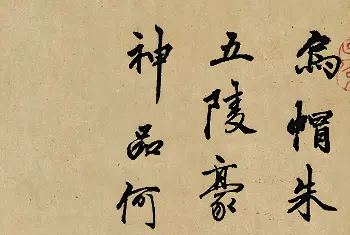 烏帽朱
五陵豪
神品何